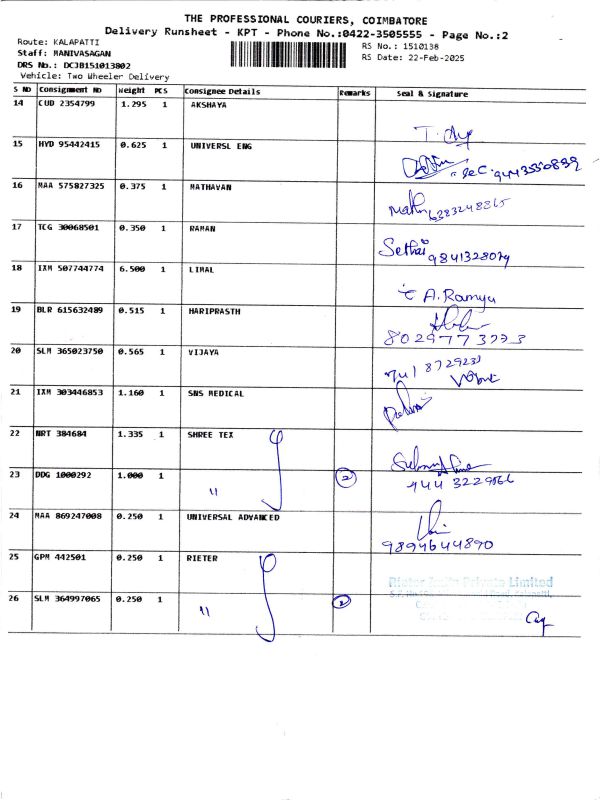 THE PROFESSIONAL COURIERS, COIMBATORE
Delivery Runsheet - KPT - Phone No.:0422-3505555 - Page No.:2
Route: KALAPATTI
RS No.: 1510138
Staff: MANIVASAGAN
RS Date: 22-Feb-2025
DRS No.: DCJB151013802
Vehicle: Two Wheeler Delivery
S NO Consignment NO Weight PCS Consignee Details Remarks Seal & Signature
14 CUD 2354799 1.295 1 AKSHAYA
15 HYD 95442415 0.625 1 UNIVERSL ENG
16 MAA 575827325 0.375 1 MATHAVAN
17 TCG 30068501 0.350 1 RAMAN
9841328079
18 IXM 507744774 6.500 1 LIMAL
A. Ramya
19 BLR 615632489 0.515 1 HARIPRASTH
20 SLM 365023750 0.565 1 VIJAYA
21 IXM 303446853 1.160 1 SNS MEDICAL
22 NRT 384684 1.335 1 SHREE TEX
23 DDG 1000292 1.000 1 " 2
24 MAA 869247008 0.250 1 UNIVERSAL ADVANCED
9894644890
25 GPM 442501 0.250 1 RIETER
Rieter India Private Limited
26 SLM 364997065 0.250 1 " 2